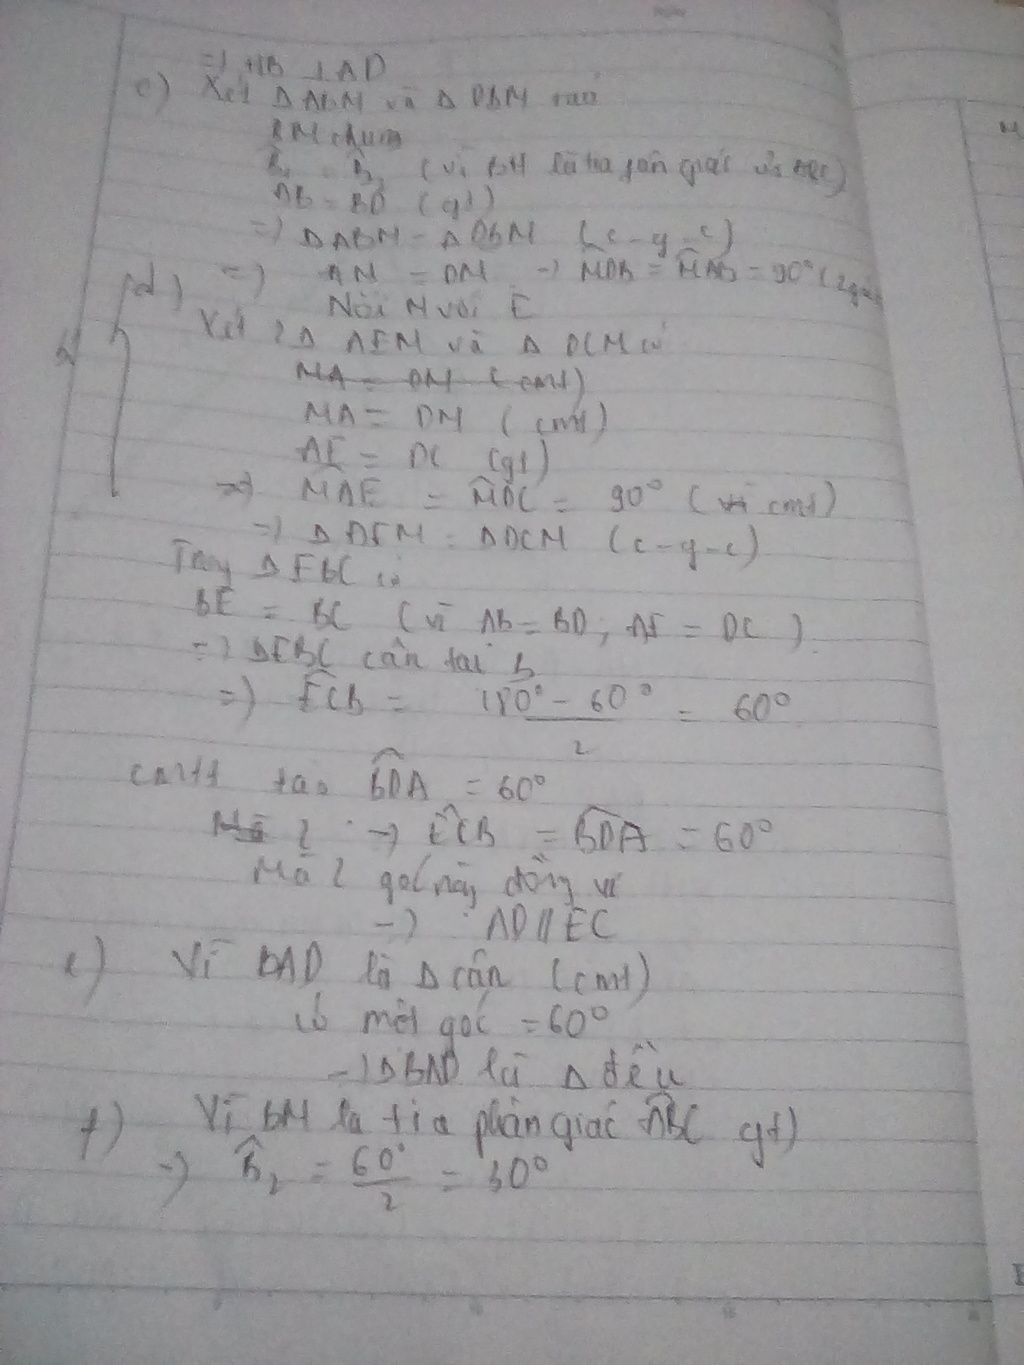 =) HB ⊥ AD
c) Xét Δ ABM và Δ DBM
BM chung
B̂₁ = B̂₂ (vì BH là tia phân giác
AB = BD (gt)
=) Δ ABM = Δ DBM (c-g-c)
=) AM = DM -) MDB = MAB = 90°
d) Nối M với E
Xét 2 Δ AEM và Δ DCM có
MA = DM (cmt)
MA = DM (cmt)
AE = DC (gt)
=) MAE = MDC = 90° (vì cmt)
=) Δ AEM = ΔDCM (c-g-c)
Trong Δ EBC có
BE = BC (vì AB = BD; AE = DC)
=) ΔEBC cân tại B
=) ECB = (180° - 60°)/2 = 60°
cmtt BDA = 60°
-) ECB = BDA = 60°
Mà 2 góc này đồng vị
-) AD // EC
e) Vì BAD là Δ cân (cmt)
có một góc = 60°
-) Δ BAD là Δ đều
f) Vì BM là tia phân giác ABC gt)
-) B̂₂ = 60°/2 = 30°